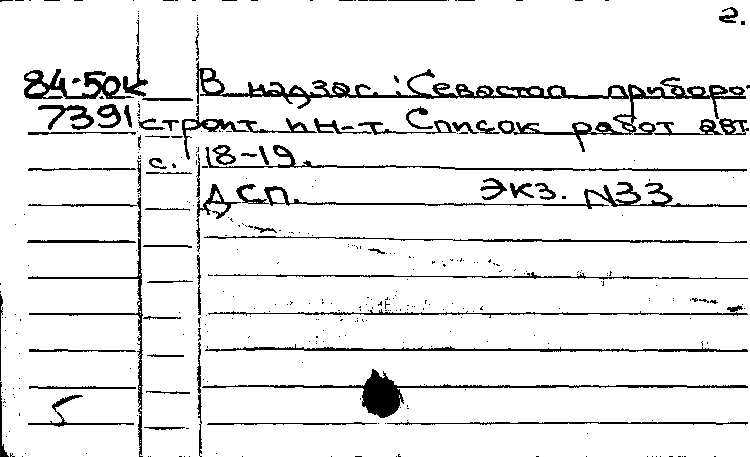 2.
84-50к В надзаг.: Севастоп приборо-
7391 строит. ин-т. Список работ авт.
с. 18-19.
ДСП. экз. N33
5